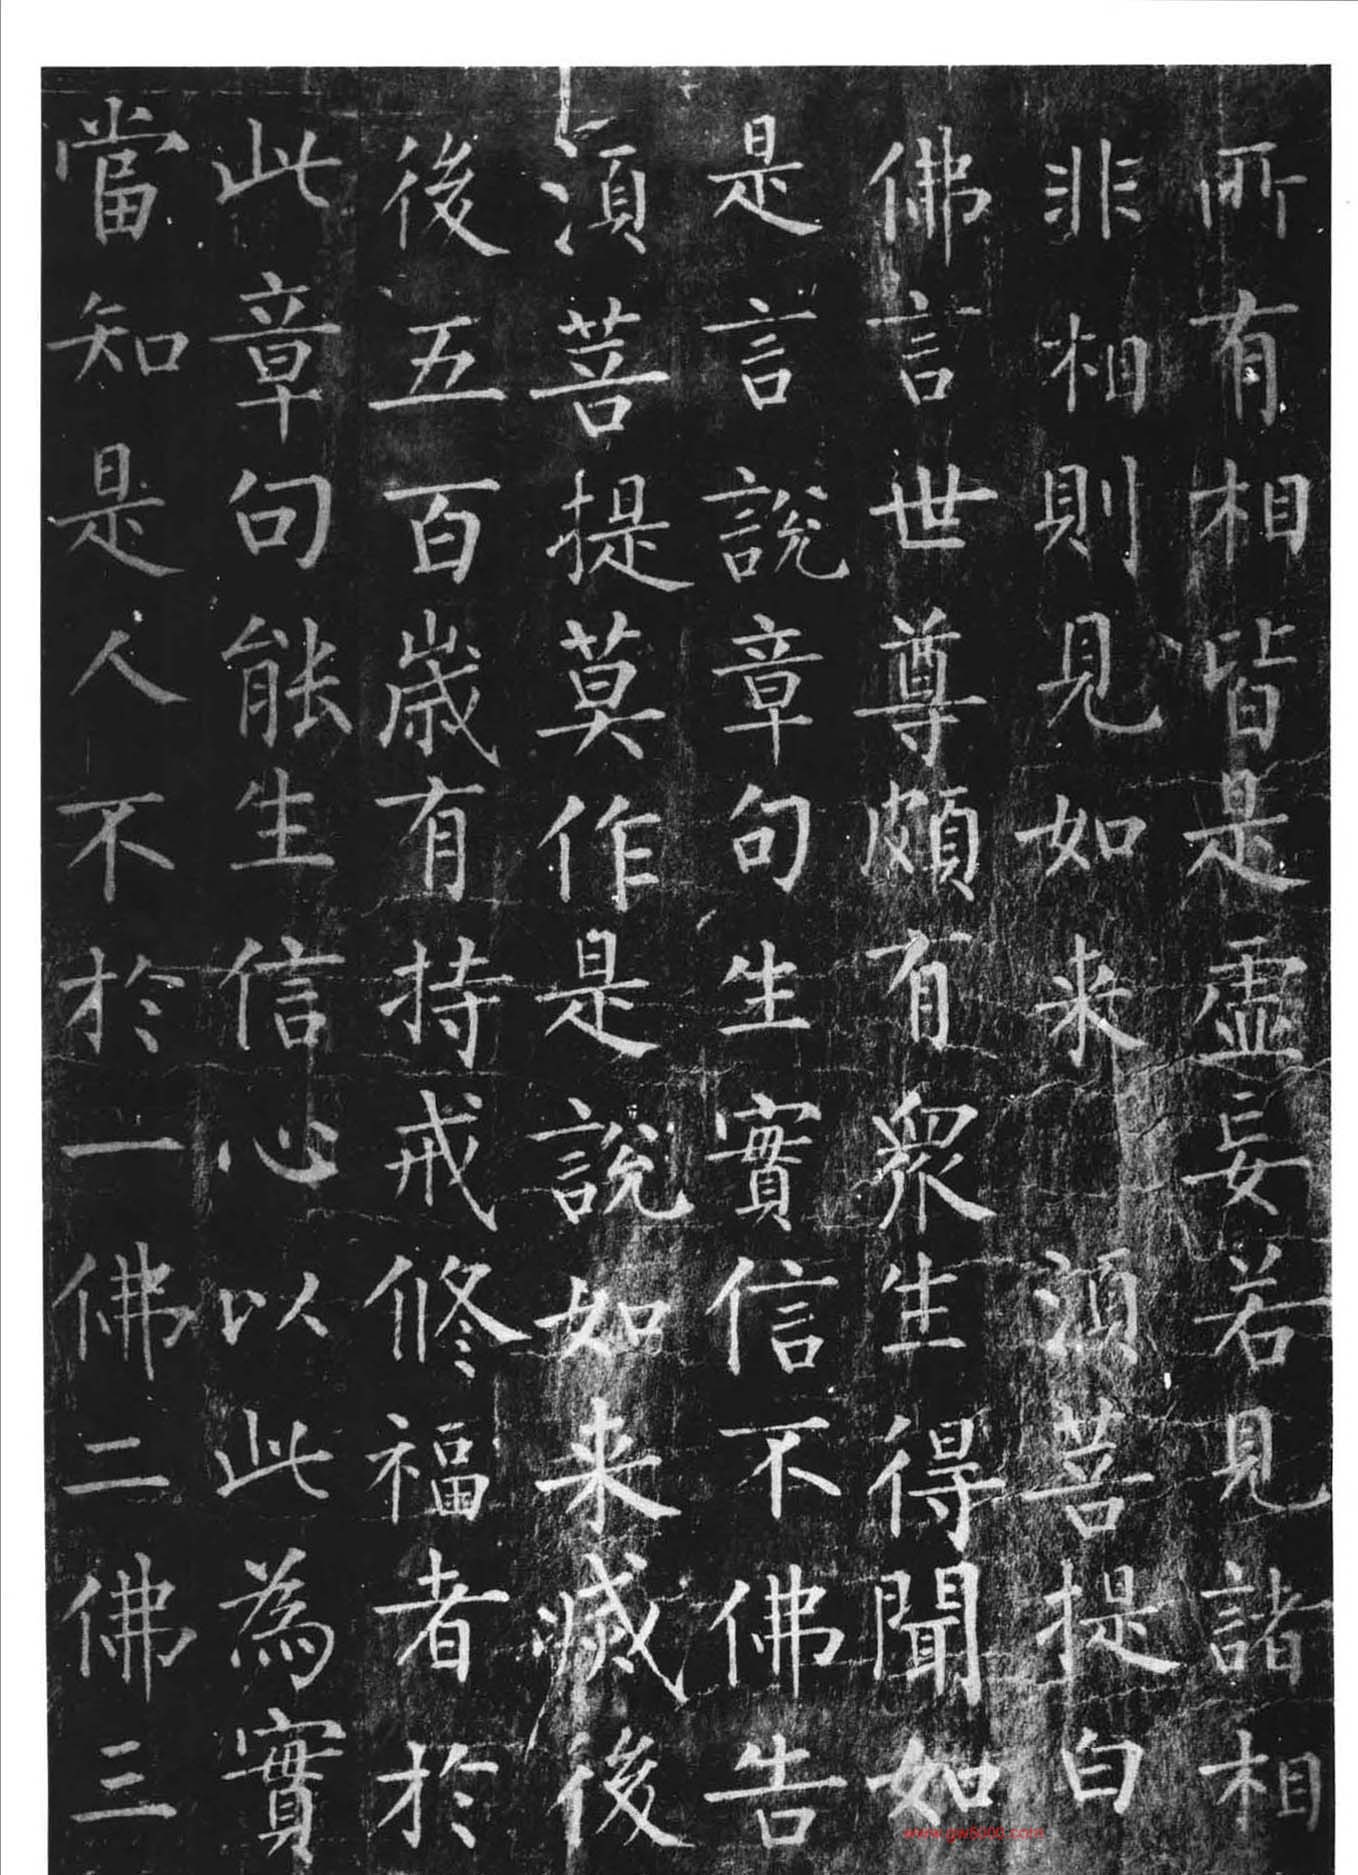 所有相皆是虛妄若見諸相
非相則見如来須菩提白
佛言世尊頗有眾生得聞如
是言說章句生實信不佛告
須菩提莫作是說如来滅後
後五百歲有持戒修福者於
此章句能生信心以此為實
當知是人不於一佛二佛三
www.gw8000.com